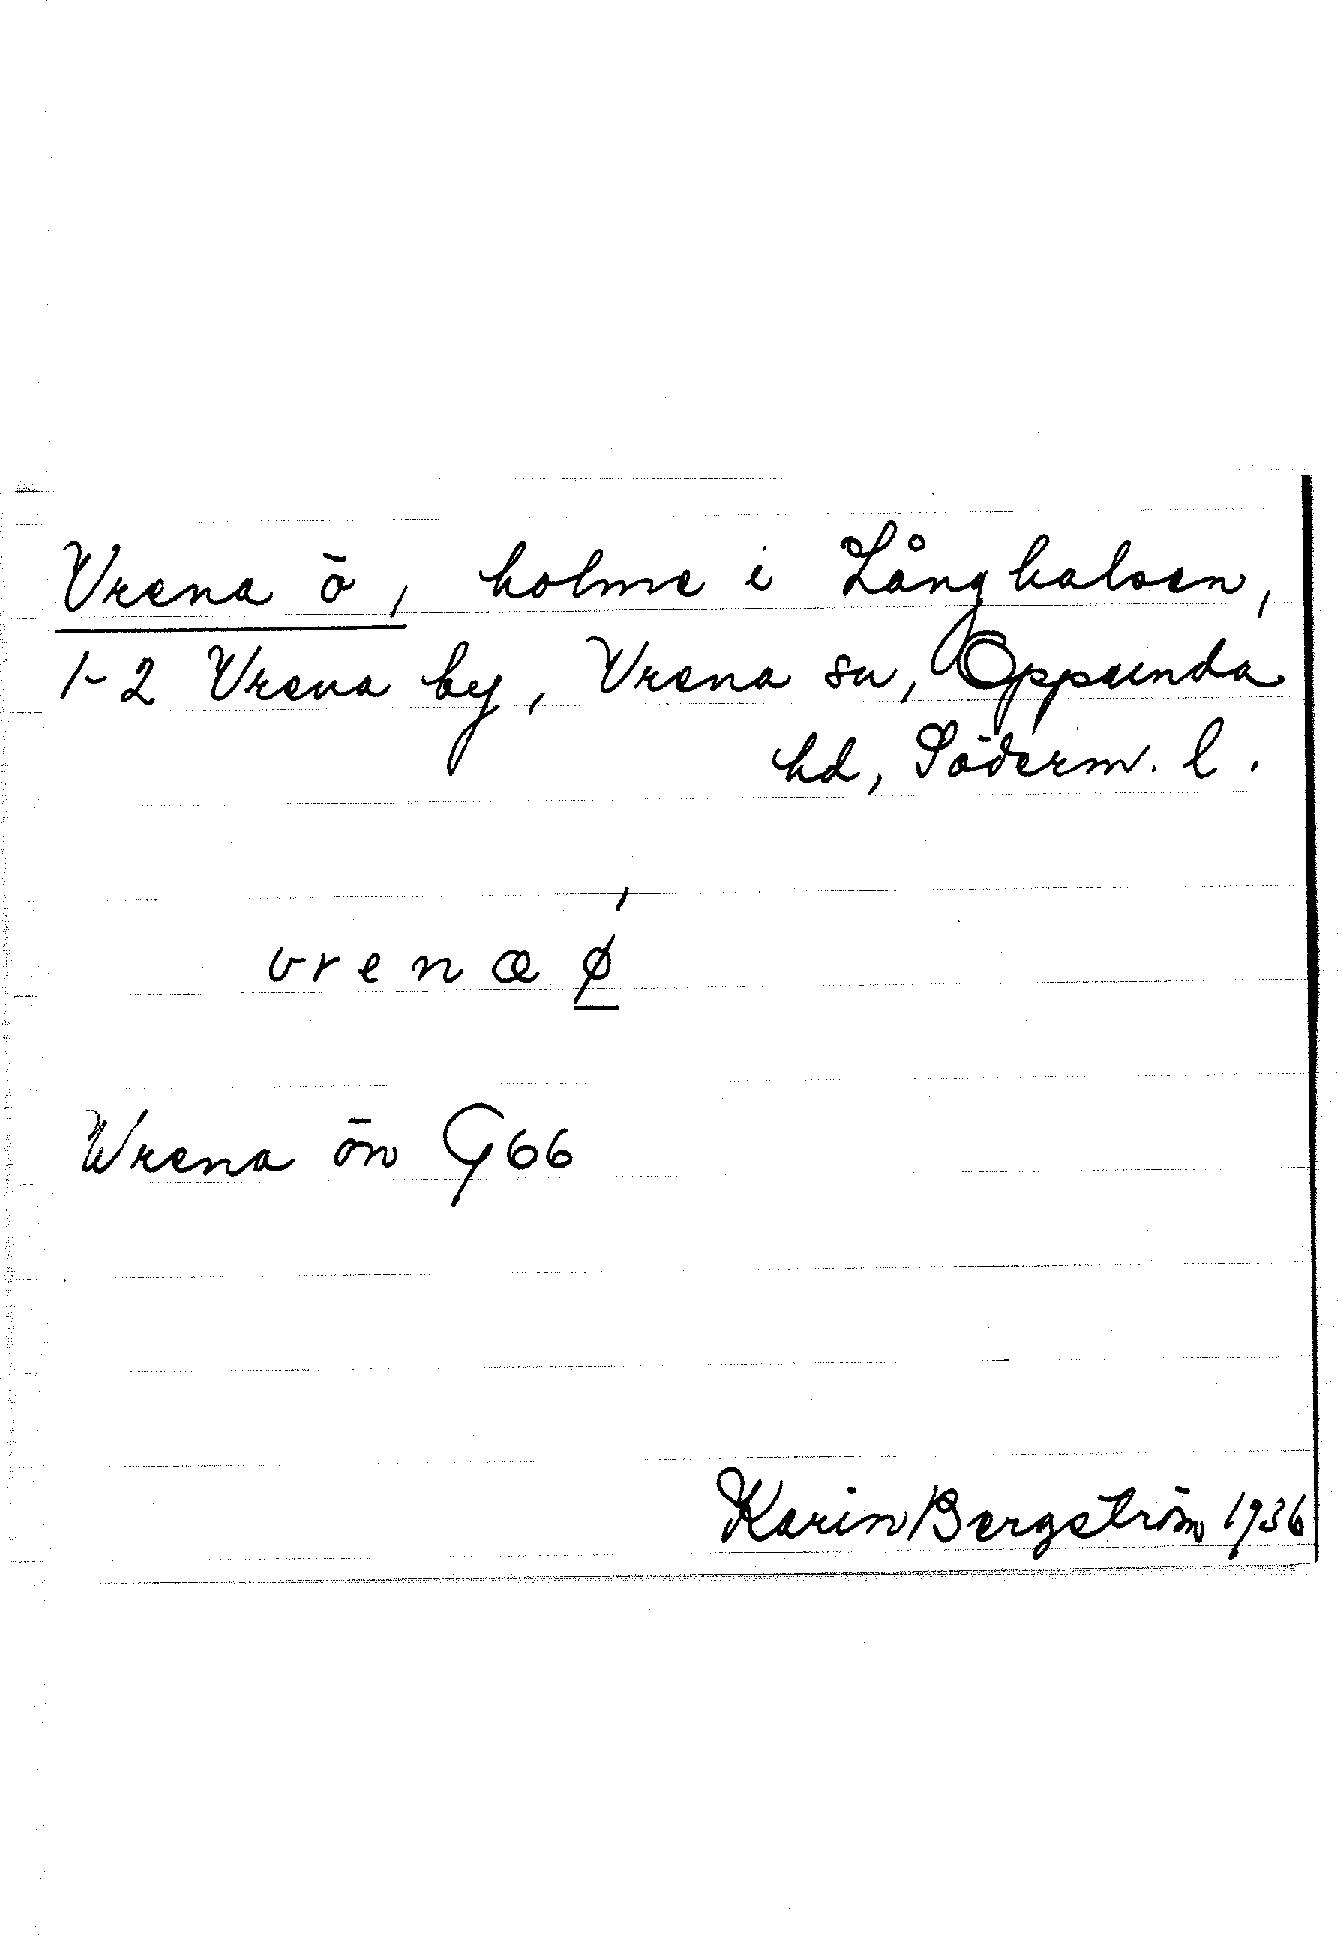 Vrena ö, holme i Långhalsen,
1-2 Vrena by, Vrena sn, Oppunda
hd, Söderm. l.
vrenaǿ̲
Wrena ön G66
Karin Bergström 1936